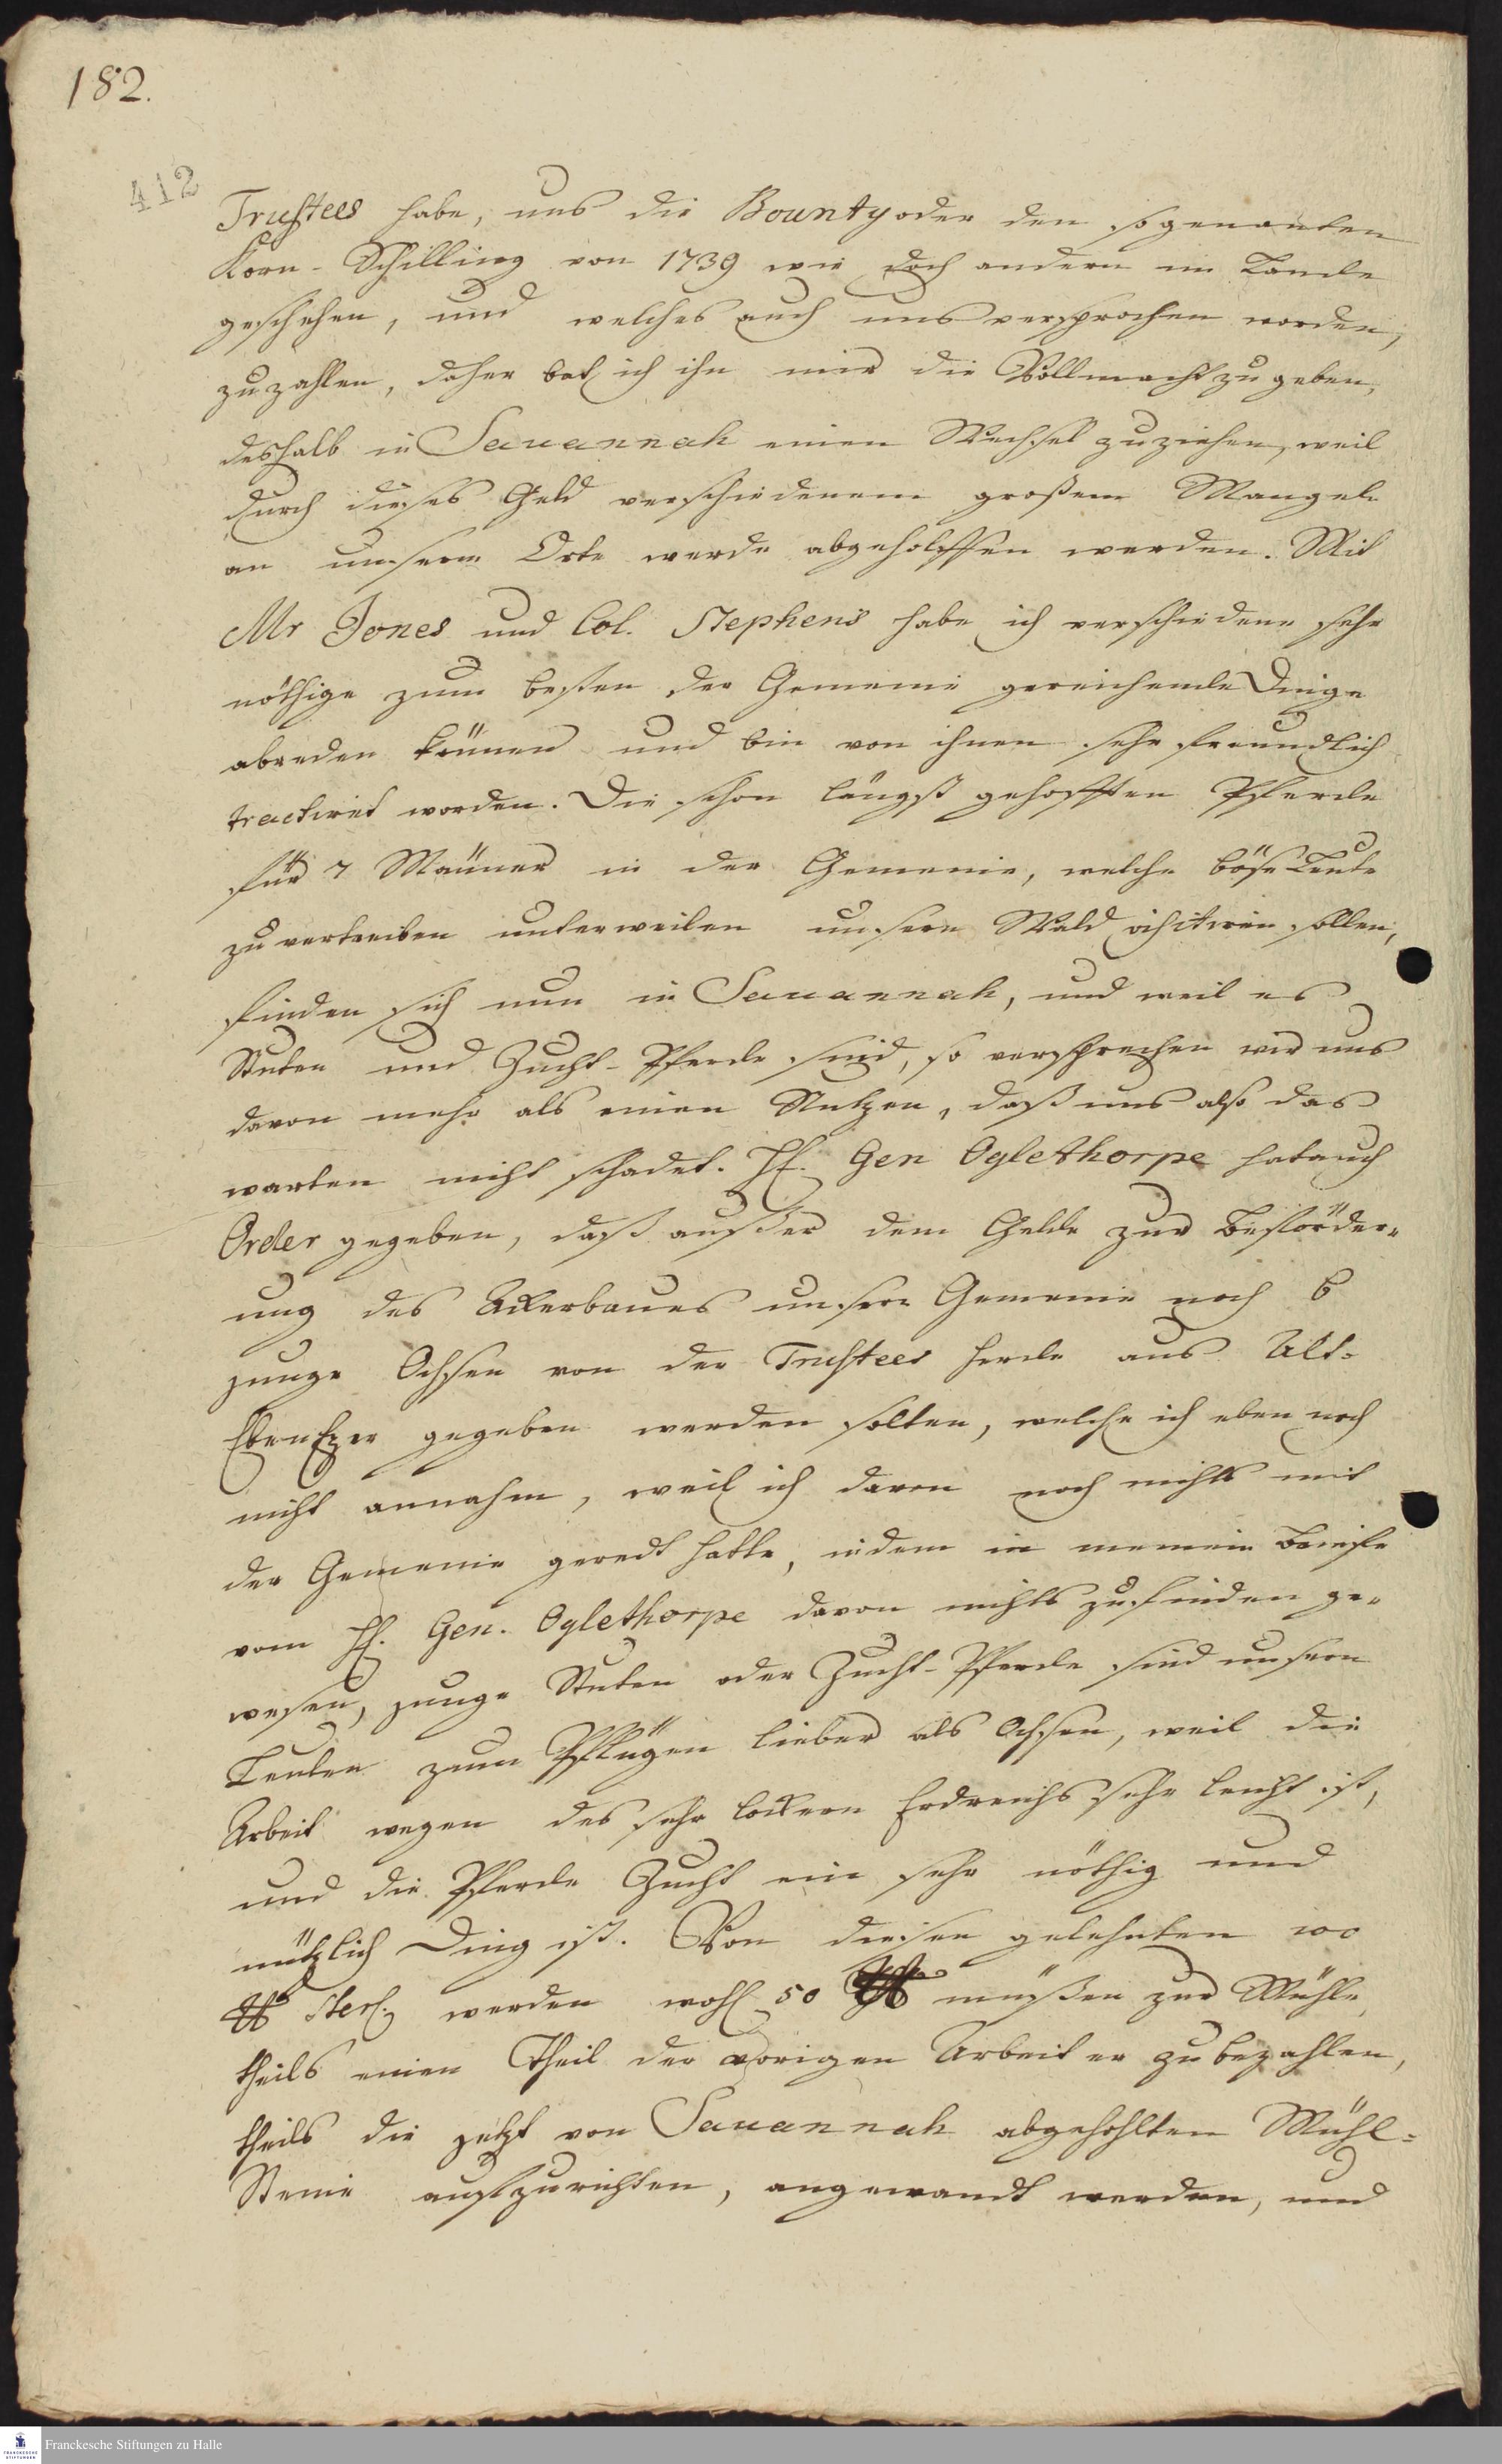 182.
412
Trustees habe, uns die Bounty oder den sogenanten
Korn-Schilling von 1739 wie doch andern im Lande
geschehen, und welches auch uns versprochen worden,
zuzahlen, daher bat ich ihn mir die Vollmacht zu geben,
deshalb in Savannah einen Wechsel zuziehen, weil
durch dieses Geld verschiedenem großem Mangel
an unserm Orte werde abgeholffen werden. Mit
Mr Jones und Col. Stephens habe ich verschiedene sehr
nöthige zum besten der Gemeine gereichende Dinge
abreden können und bin von ihnen sehr freundlich
tractiret worden. Die schon längst gehofften Pferde
für 7 Männer in der Gemeine, welche böse Leute
zu vertreiben unterweilen unsern Wald visitiren sollen,
finden sich nun in Savannah, und weil es
Stuten und Zucht-Pferde sind, so versprechen wir uns
davon mehr als einen Nutzen, daß uns also das
warten nicht schadet. H. Gen Oglethorpe hat auch
Order gegeben, daß außer dem Gelde zur Beförder-
ung des Ackerbaues unserer Gemeine noch 6
junge Ochsen von der Trustees Herde aus Alt-
EbenEzer gegeben werden solten, welche ich eben noch
nicht annahm, weil ich davon noch nichts mit
der Gemeine geredt hatte, indem in meinem Briefe
vom H. Gen. Oglethorpe davon nichts zufinden ge-
wesen, junge Stuten oder Zucht-Pferde sind unsern
Leuten zum Pflügen lieber als Ochsen, weil die
Arbeit wegen des sehr lockern Erdreichs sehr leicht ist,
und die Pferde Zucht ein sehr nöthig und
nützlich Ding ist. Von diesen gelehnten 100
℔ Sterl. werden wohl 50 ℔ müßen zur Mühle
theils einen Theil der vorigen Arbeit er zu bezahlen,
theils die jetzt von Savannah abgehohlten Mühl-
Steine aufzurichten, angewandt werden, und
Franckesche Stiftungen zu Halle
FRANCKESCHE
STIFTUNGEN